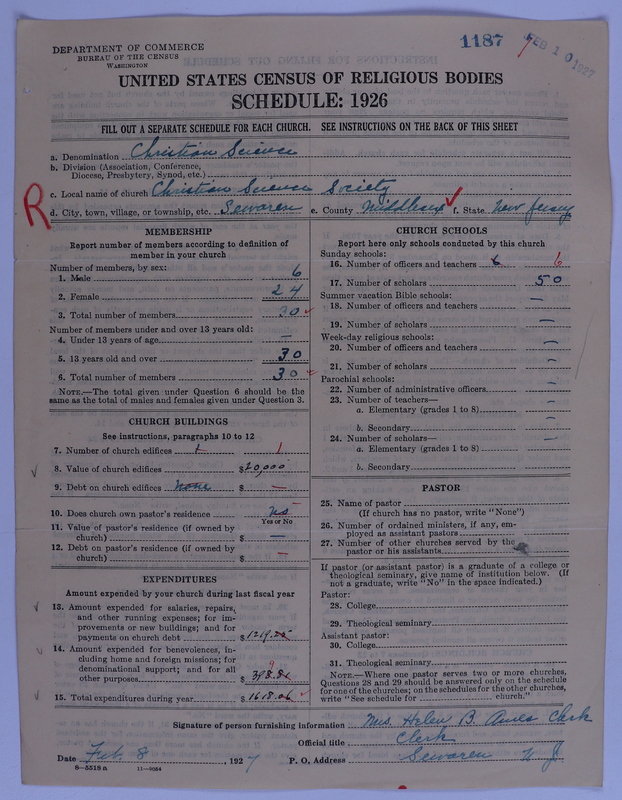 1187
FEB 10 1927
DEPARTMENT OF COMMERCE
BUREAU OF THE CENSUS
WASHINGTON
UNITED STATES CENSUS OF RELIGIOUS BODIES
SCHEDULE: 1926
FILL OUT A SEPARATE SCHEDULE FOR EACH CHURCH. SEE INSTRUCTIONS ON THE BACK OF THIS SHEET
a. Denomination Christian Science
b. Division (Association, Conference,
Diocese, Presbytery, Synod, etc.)
R
c. Local name of church Christian Science Society
d. City, town, village, or township, etc. Sewaren e. County Middlesex f. State New Jersey
MEMBERSHIP
Report number of members according to definition of
member in your church
Number of members, by sex:
1. Male 6
2. Female 24
3. Total number of members 30
Number of members under and over 13 years old:
4. Under 13 years of age —
5. 13 years old and over 30
6. Total number of members 30
NOTE.—The total given under Question 6 should be
same as the total of males and females given under Question 3.
CHURCH BUILDINGS
See instructions, paragraphs 10 to 12
7. Number of church edifices 1 1
8. Value of church edifices $20,000
9. Debt on church edifices None $ —
10. Does church own pastor's residence No
Yes or No
11. Value of pastor's residence (if owned by
church) $ —
12. Debt on pastor's residence (if owned by
church) $ —
EXPENDITURES
Amount expended by your church during last fiscal year
13. Amount expended for salaries, repairs,
and other running expenses; for im-
provements or new buildings; and for
payments on church debt $1219.25
14. Amount expended for benevolences, in-
cluding home and foreign missions; for
denominational support; and for all
other purposes $398.81
15. Total expenditures during year $1618.06
CHURCH SCHOOLS
Report here only schools conducted by this church
Sunday schools:
16. Number of officers and teachers 6 6
17. Number of scholars 50
Summer vacation Bible schools:
18. Number of officers and teachers —
19. Number of scholars —
Week-day religious schools:
20. Number of officers and teachers —
21. Number of scholars —
Parochial schools:
22. Number of administrative officers —
23. Number of teachers—
a. Elementary (grades 1 to 8) —
b. Secondary —
24. Number of scholars—
a. Elementary (grades 1 to 8) —
b. Secondary
PASTOR
25. Name of pastor
(If church has no pastor, write "None")
26. Number of ordained ministers, if any, em-
ployed as assistant pastors
27. Number of other churches served by the
pastor or his assistants
If pastor (or assistant pastor) is a graduate of a college or
theological seminary, give name of institution below. (If
not a graduate, write "No" in the space indicated.)
Pastor:
28. College
29. Theological seminary
Assistant pastor:
30. College
31. Theological seminary
NOTE.—Where one pastor serves two or more churches,
Questions 28 and 29 should be answered only on the schedule
for one of the churches; on the schedules for the other churches,
write "See schedule for church."
Signature of person furnishing information Mrs. Helen B. Ames Clerk
Official title Clerk
Date Feb. 8, 1927 P. O. Address Sewaren N J
8—5518 a 11—9064